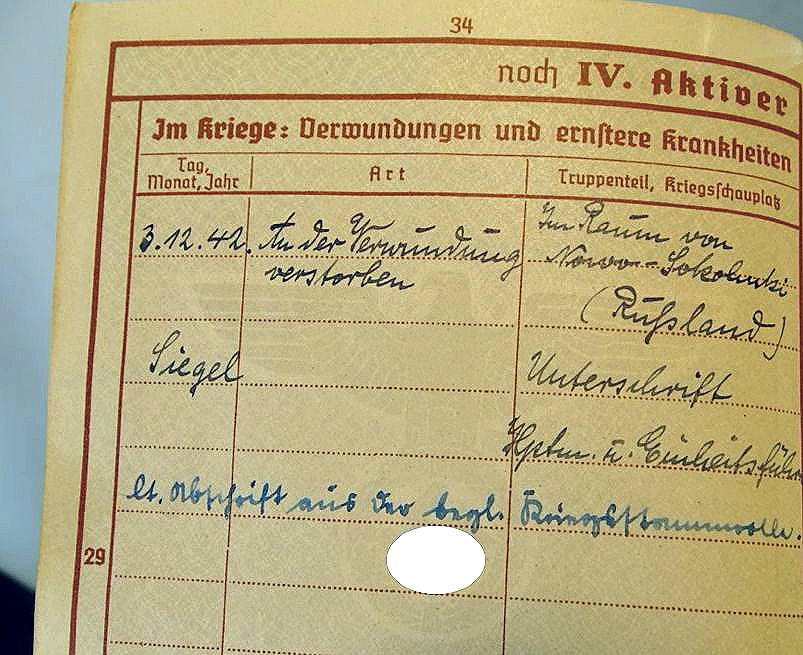 34
noch IV. Aktiver
Im Kriege: Verwundungen und ernstere Krankheiten
Tag, Monat, Jahr
Art
Truppenteil, Kriegsschauplatz
3.12.42. An der Verwundung Im Raum von
verstorben Nowo-Sokolniki
(Rußland)
Siegel Unterschrift
Hptm. u. Einheitsführ
lt. Abschrift aus der begl. Kriegsstammrolle.
29